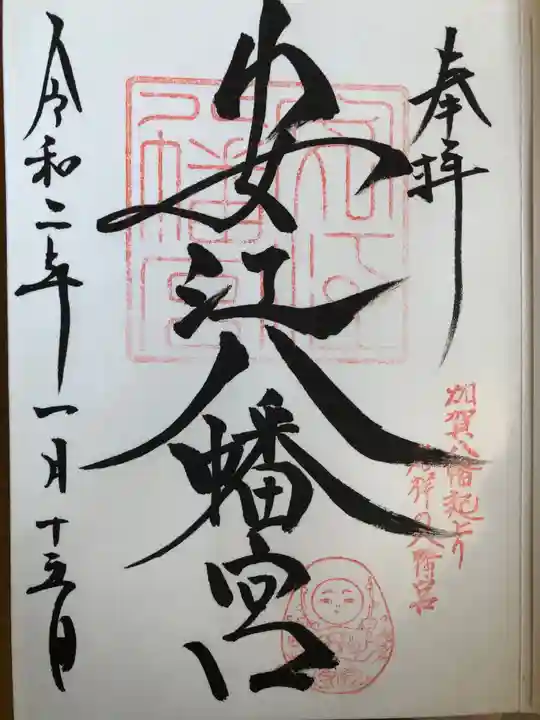 奉拝
加賀八幡起上り
発祥の八幡宮
安江八幡宮
令和二年一月十五日